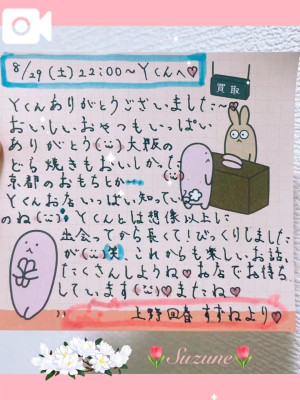 8/29(土)22:00〜Yくんへ♡
買取
Yくんありがとうございました〜♡
おいしいおやつもいっぱい
ありがとう(¨)大阪の
どら焼きもおいしかた(¨)
京都のおもちとか
Yくんお店いっぱい知っている
のね(¨)!Yくんとは想像以上に
出会ってから長くて!びっくりしました
が(¨)笑 これからも楽しいお話、
たくさんしようね♡お店でお待ち
しています(¨)またね♡
上野回春 すずねより♡
Suzune